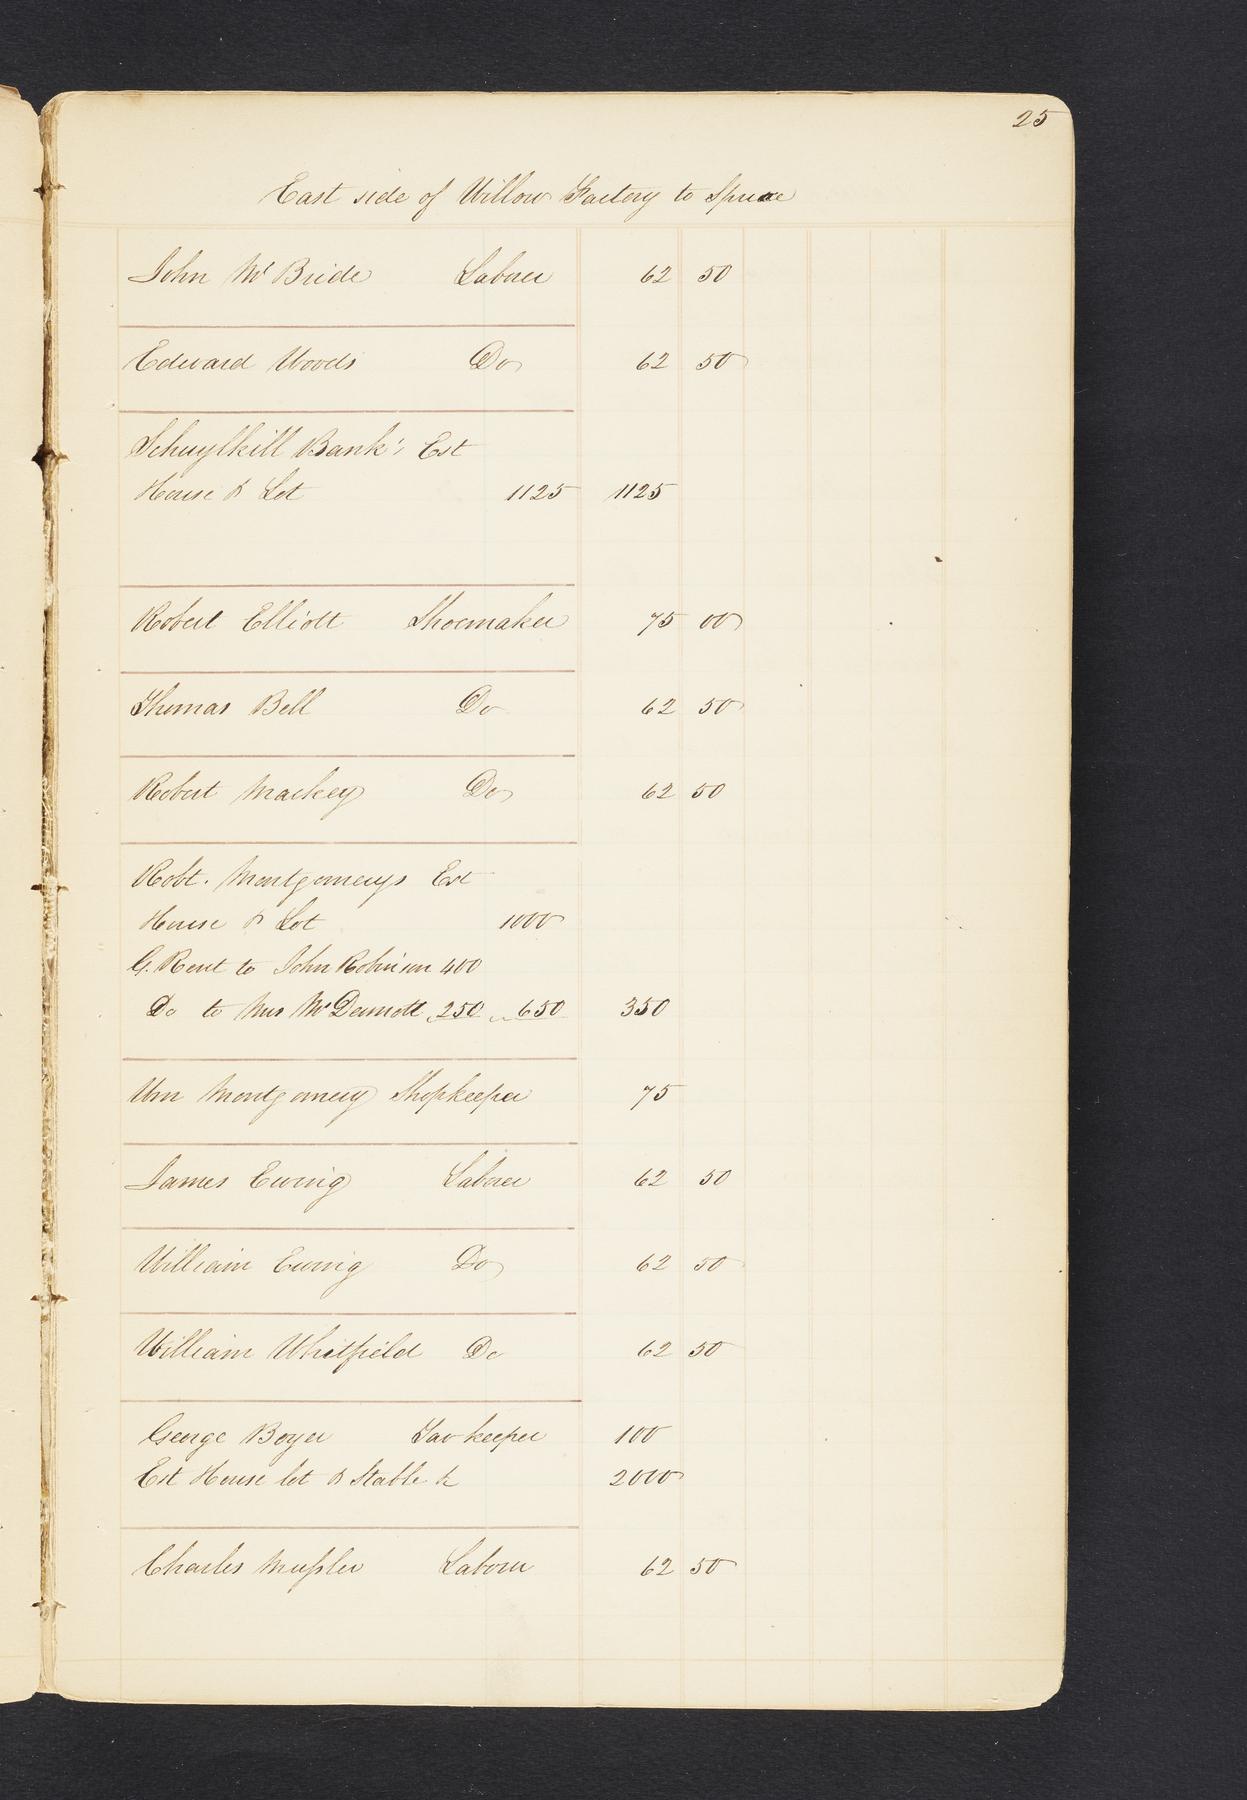 25
East side of Willow Factory to Spruce
John Mc Bride Laborer 62 50
Edward Woods Do 62 50
Schuylkill Bank's Est
House & Lot 1125 1125
Robert Elliott Shoemaker 75 00
Thomas Bell Do 62 50
Robert Mackey Do 62 50
Robt. Montgomerys Est
House & Lot 1000
G. Rent to John Robinson 400
Do to Mrs McDermott 250 650 350
Wm Montgomery Shopkeeper 75
James Ewing Laborer 62 50
William Ewing Do 62 50
William Whitfield Do 62 50
George Boyer Tavkeeper 100
Est House lot & Stable &c 2000
Charles Mussler Laborer 62 50